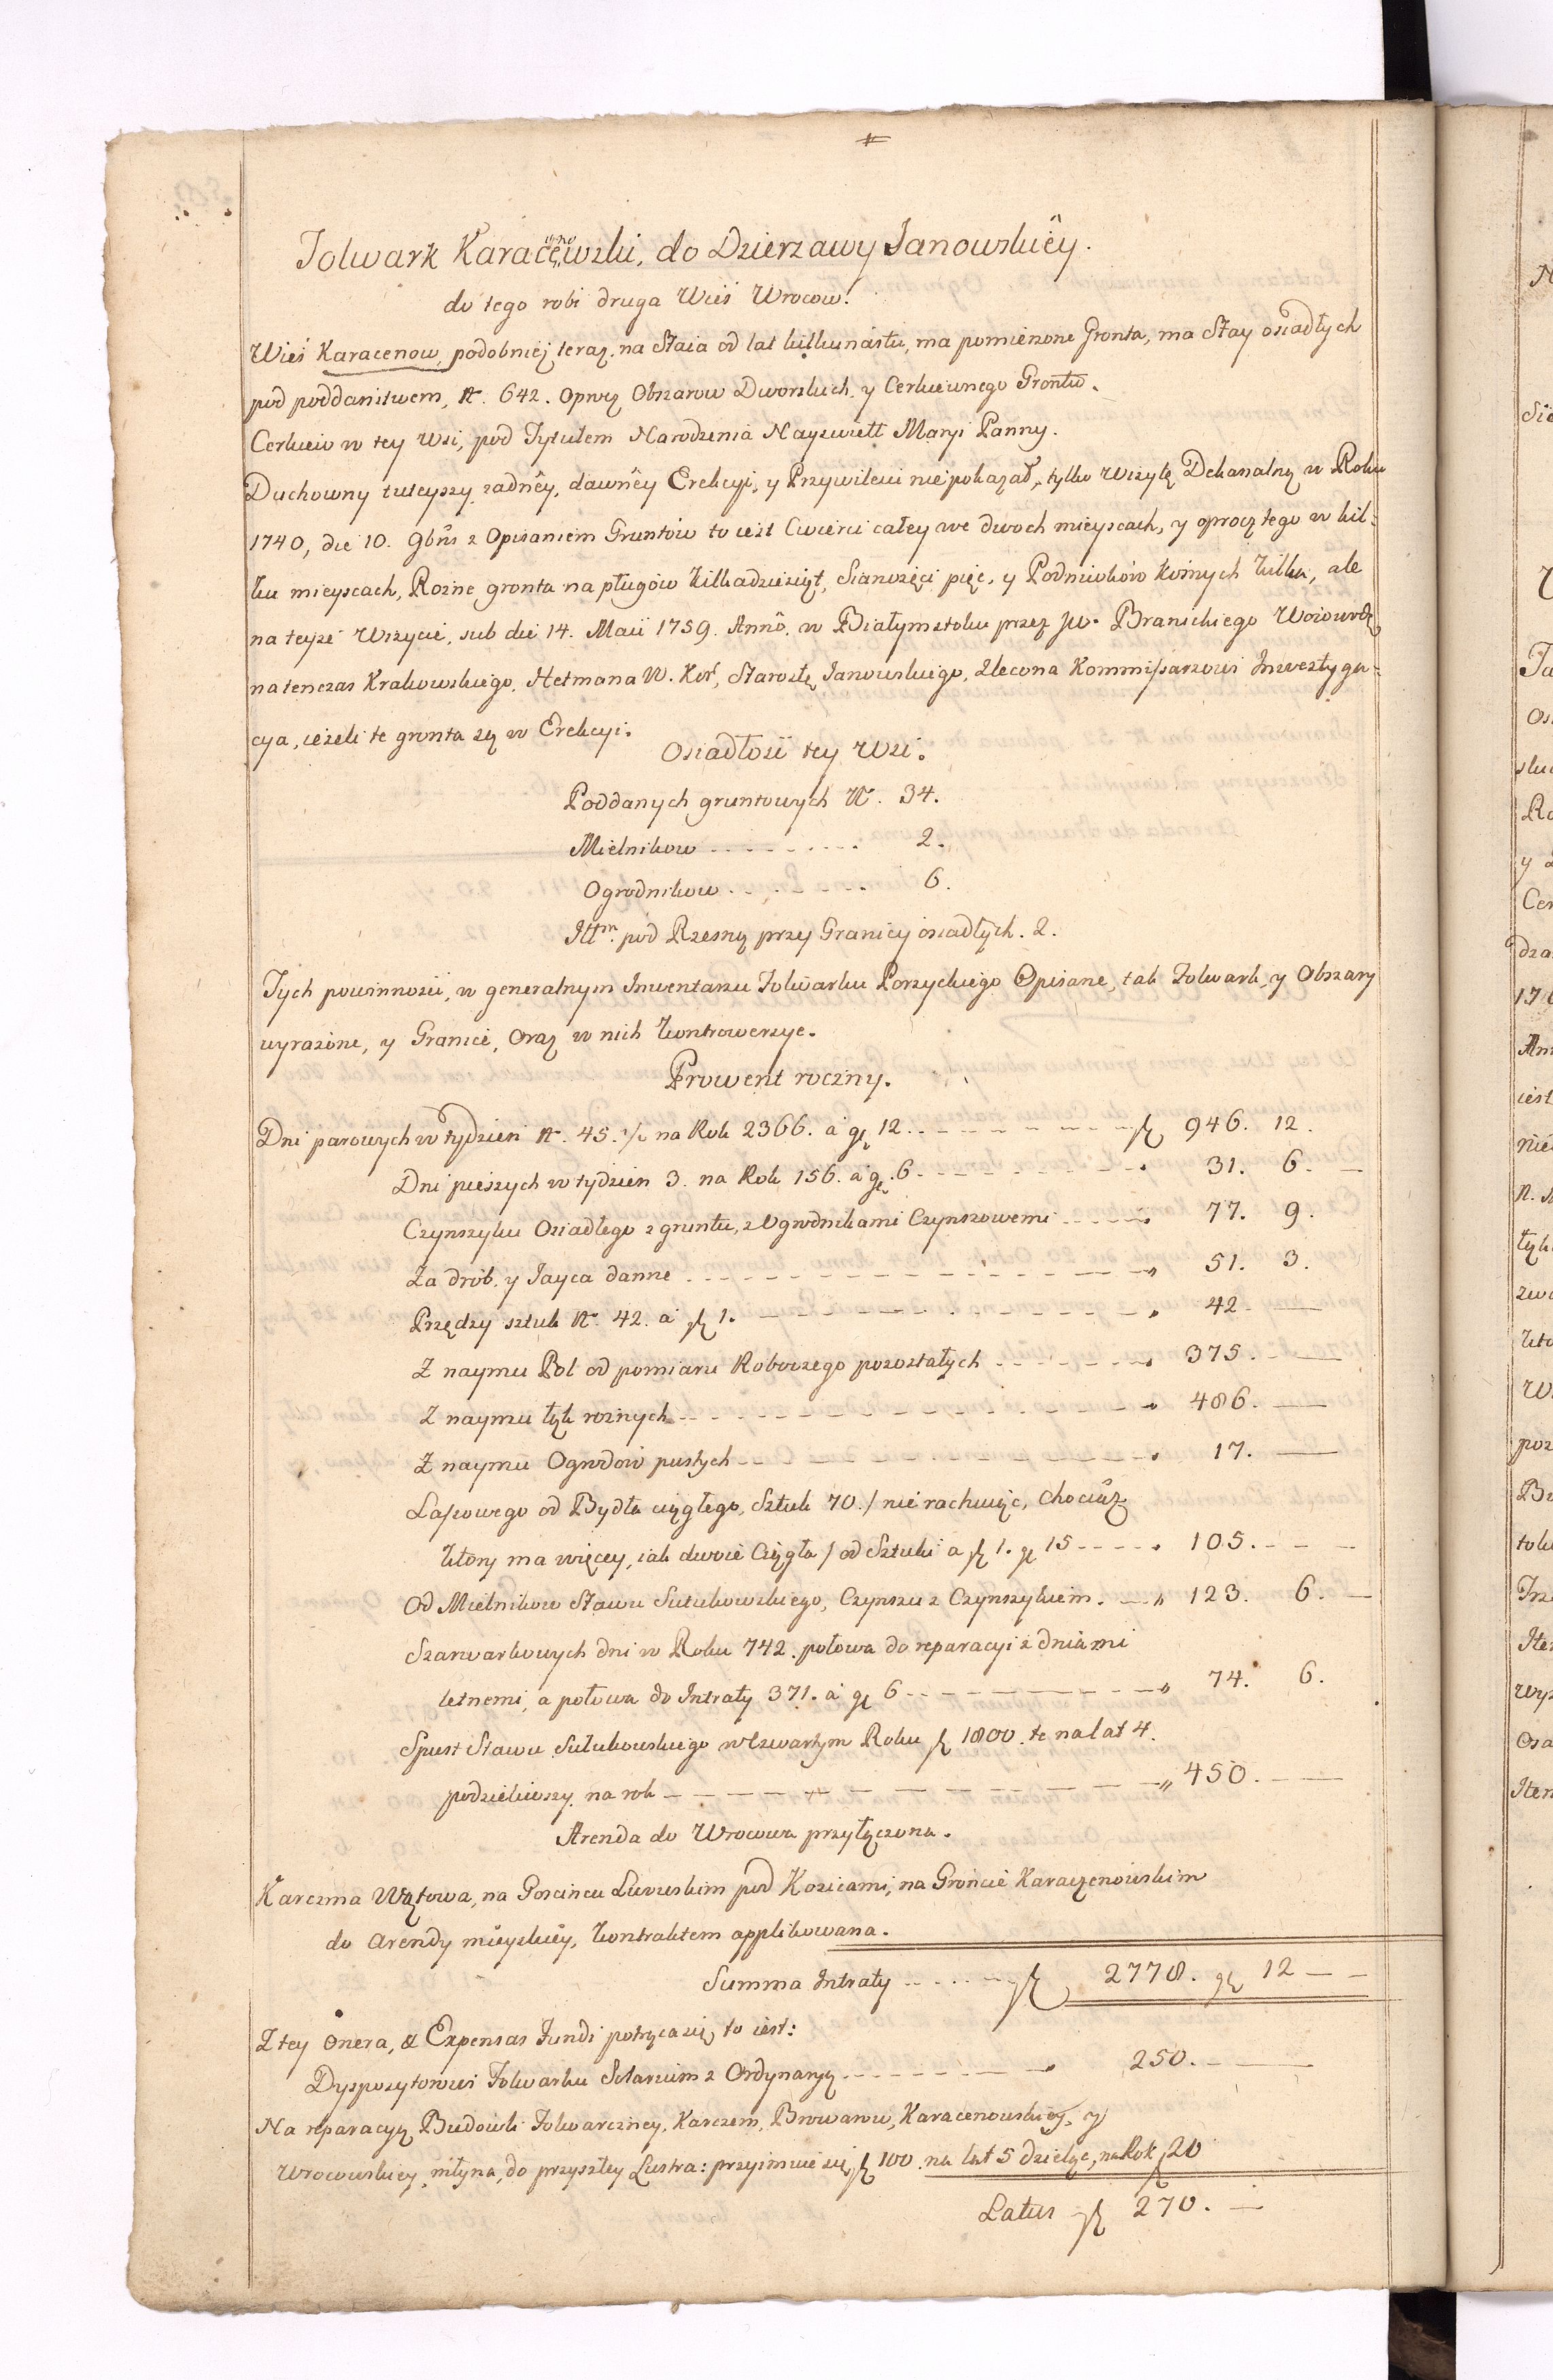 Folwark Karacewski, do Dzierzawy Janowskiey.
do tego robi druga Wieś Wrocow.
Wieś Karacenow, podobniej teraz, na Staia od lat kilkunastu, ma pomienone Gronta, ma Stay osiadłych
pod poddanstwem, N. 642. oprocz Obszarow Dworskich, y Cerkiewnego Grontu.
Cerkiew w tey Wsi, pod Tytułem Narodzenia Nayswiett Maryi Panny.
Duchowny tuteyszy zadney, dawney Erekcyi, y Przywileiu nie pokazał, tylko Wizytę Dekanalną w Roku
1740, die 10. 9bris z Opisaniem Gruntow to iest Cwierci całey we dwoch mieyscach, y oprocz tego w kil-
ku mieyscach, Rozne gronta na pługow kilkadziesiąt, Sianożęci pięć, y Podniwkow kosnych kilka, ale
na teyże Wizycie, sub die 14. Maii 1759. Anno. w Białymstoku przez JW. Branickiego Woiewodę
na tenczas Krakowskiego, Hetmana W. Kor, Starostę Janowskiego, zlecona Kommissarzowi Inwestyga-
cya, ieżeli te gronta są w Erekcyi.
Osiadłość tey Wsi.
Poddanych gruntowych N. 34.
Mielnikow 2.
Ogrodnikow 6.
Ittm. pod Rzesną przy Granicy osiadłych. 2.
Tych powinności, w generalnym Inwentarzu Folwarku Porzyckiego Opisane, tak Folwark, y Obszary
wyrażone, y Granice, Oraz w nich kontrowersye.
Prowent roczny.
Dni parowych w tydzień N. 45. ½ na Rok 2366. a gr 12 zł 946. 12.
Dni pieszych w tydzień 3. na Rok 156. a gr. 6 31. 6.
Czynszyku Osiadłego z gruntu, z Ogrodnikami Czynszowemi 77. 9.
Za drób. y Jayca danne 51. 3.
Przędzy sztuk N. 42. a zł 1. 42.
Z naymu Pol od pomiaru Roboczego pozostałych 375.
Z naymu łąk roznych 486.
Z naymu Ogrodow pustych 17.
Lasowego od Bydła ciągłego, Sztuk 70. / nie rachuiąc, chociaż
ktory ma więcey, iak dwoie Ciągła / od Sztuki a zł 1. gr 15 105.
Od Mielnikow Stawu Sulukowskiego, Czynszu z Czynszykiem. 123. 6.
Szarwarkowych dni w Roku 742. połowa do reparacyi z dniami
letnemi, a połowa do Intraty 371. a gr 6 74. 6.
Spust Stawu Sulukowskiego w Czwartym Roku zł 1800. te na lat 4.
podzieliwszy na rok 450.
Arenda do Wrocowa przyłączona.
Karczma Wątowa, na Goscincu Lwowskim pod Kozicami, na Groncie Karaczenowskim
do Arendy mieyskiey, kontraktem applikowana.
Summa Intraty zł 2778. gr 12
Z tey Onera, & Expensas Fundi potrąca się, to iest:
Dyspozytorowi Folwarku Solarium z Ordynaryą 250.
Na reparacyą Budowli Folwarczney, Karczem, Browaru, Karacenowskiey, y
Wrocowskiey, młyna, do przyszłey Lustra: przyimuie się zł 100. na lat 5 dzieląc, na Rok zł 20
Latus zł 270.